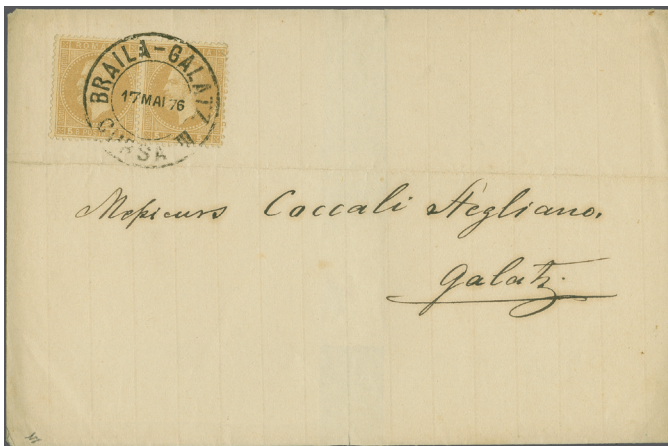 BRAILA-GALATZ
17 MAI 76
CURSA III
Messieurs Coccali Stegliano.
Galatz.